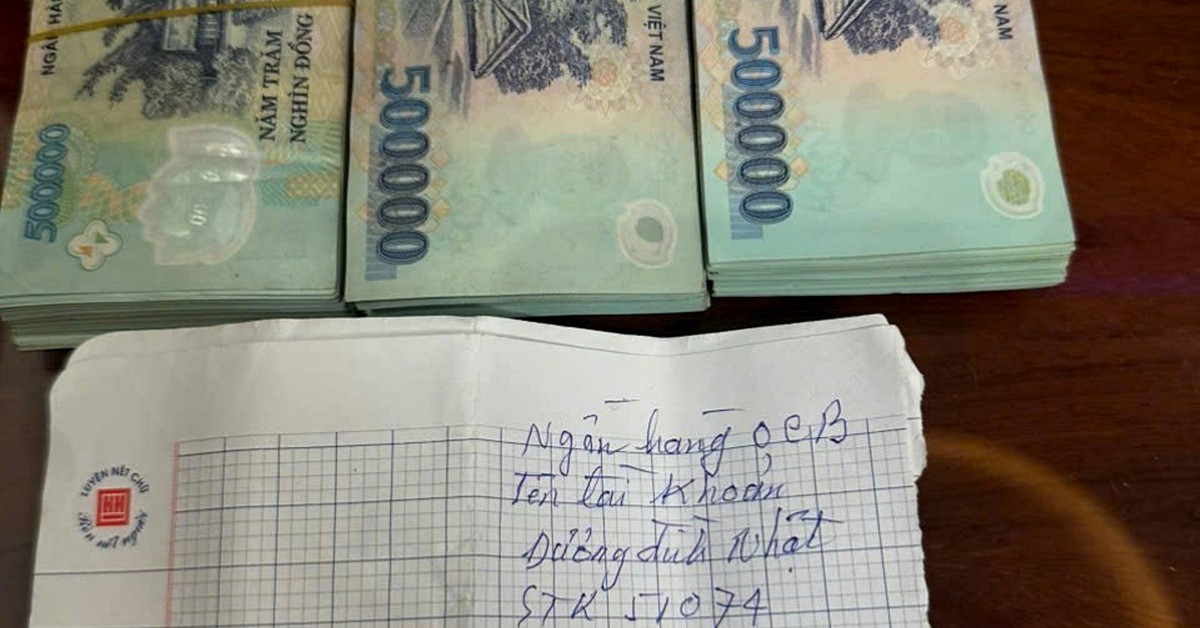 NGÂN HÀ
NĂM TRĂM
NGHÌN ĐỒNG
500000
VIỆT NAM
500000
NAM
500000
LUYỆN NÉT CHỮ
Ngân hang OCB
Tên tài khoản
Dương đình Nhất
STK 51074